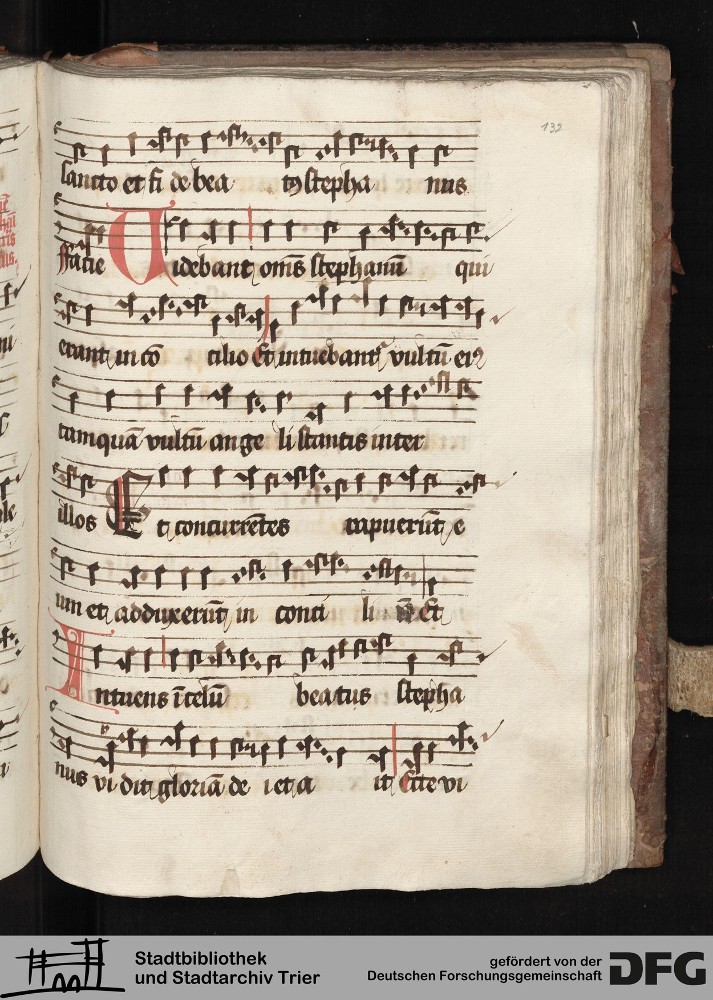 132
sancto et fi de bea tꝰ stepha nus
ffacie Uidebant om̄s stephanū qui
erant in cō cilio Et intuebantᷣ vultū eiꝰ
tamquā vultū ange li stantis inter
illos Et concurrētes rapuerūt e
um et adduxerūt in conci li Et
Intuens ī celū beatus stepha
nus vi dit gloriā de i et a it Ecce vi
Stadtbibliothek
und Stadtarchiv Trier
gefördert von der
Deutschen Forschungsgemeinschaft
DFG